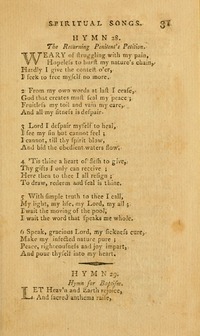 SPIRITUAL SONGS. 31
HYMN 28.
The Returning Penitent's Petition.
WEARY of struggling with my pain,
Hopeless to burst my nature's chain,
Hardly I give the contest o'er,
I seek to free myself no more.
2 From my own works at last I cease,
God that creates must seal my peace;
Fruitless my toil and vain my care,
And all my fitness is despair.
3 Lord I despair myself to heal,
I see my sin but cannot feel;
I cannot, till thy spirit blow,
And bid the obedient waters flow.
4 'Tis thine a heart of flesh to give,
Thy gifts I only can receive;
Here then to thee I all resign;
To draw, redeem and seal is thine.
5 With simple truth to thee I call,
My light, my life, my Lord, my all;
I wait the moving of the pool,
I wait the word that speaks me whole.
6 Speak, gracious Lord, my sickness cure,
Make my infected nature pure;
Peace, righteousness and joy impart,
And pour thyself into my heart.
HYMN 29.
Hymn for Baptism.
LET Heav'n and Earth rejoice,
And sacred anthems raise,